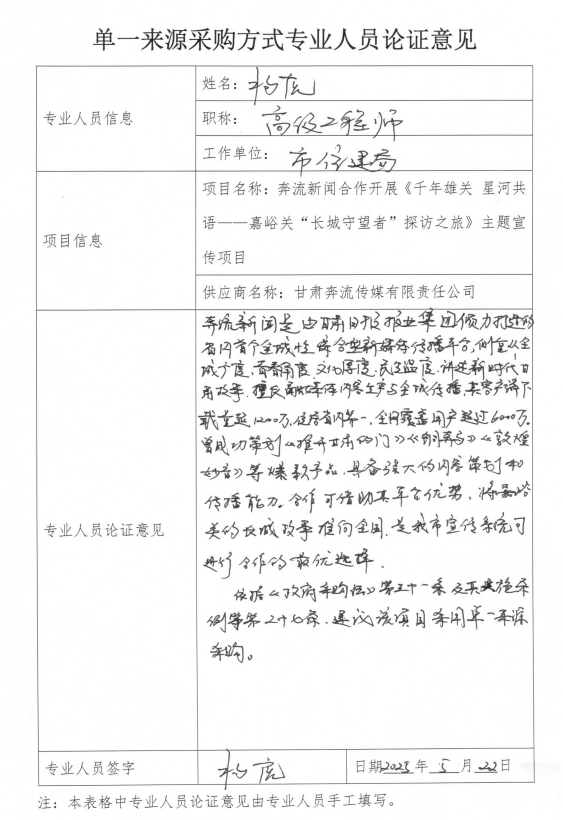 单一来源采购方式专业人员论证意见
专业人员信息
姓名：杨虎
职称：高级工程师
工作单位：市住建局
项目信息
项目名称：奔流新闻合作开展《千年雄关 星河共
语——嘉峪关“长城守望者”探访之旅》主题宣
传项目
供应商名称：甘肃奔流传媒有限责任公司
专业人员论证意见
奔流新闻是由甘肃日报报业集团倾力打造的
省内首个全域性综合型新媒体传播平台，侧重从全
域广度、青春角度、文化厚度、民生温度，讲述新时代甘
肃故事，擅长融媒体内容生产与全域传播，其客户端下
载量超1200万，位居省内第一，全网覆盖用户超过6000万。
曾成功策划《推开甘肃的门》《铜奔马》《敦煌
妙音》等爆款产品，具备强大的内容策划和
传播能力。合作可借助其平台优势，将嘉峪
关的长城故事推向全国，是我市宣传系统可
进行合作的最优选择。
依据《政府采购法》第三十一条及其实施条
例第二十七条，建议该项目采用单一来源
采购。
专业人员签字
杨虎
日期2025年5月22日
注：本表格中专业人员论证意见由专业人员手工填写。